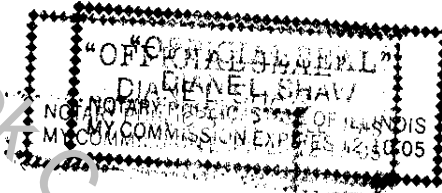 "OFFICIAL SEAL"
DIANE L. SHAW
NOTARY PUBLIC STATE OF ILLINOIS
MY COMMISSION EXPIRES 12/10/05